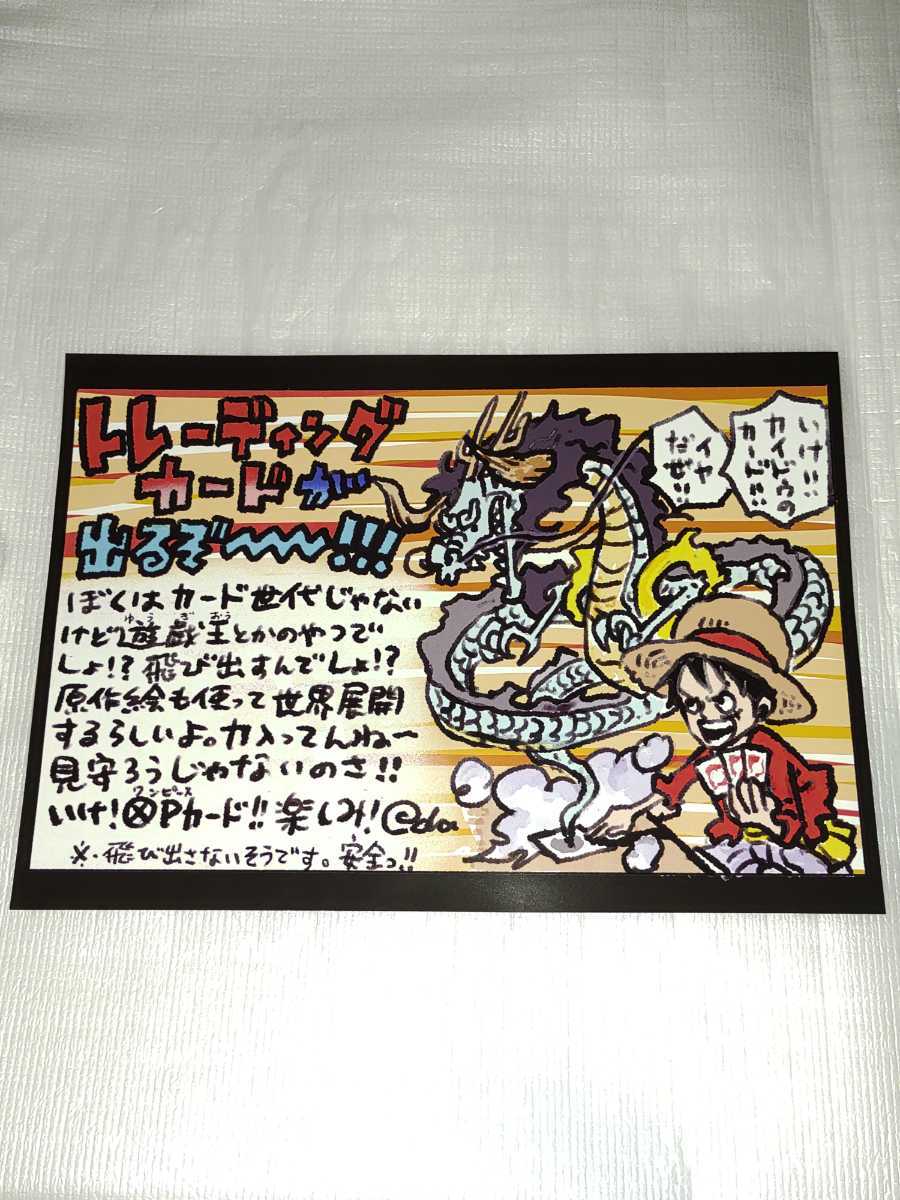 トレーディング
カードが
出るぞ〜〜〜!!!
いけ!!
カイドウの
カード!!!
イヤ
だぜ!!
ぼくはカード世代じゃない
けど遊戯王とかのやつで
しょ!?飛び出すんでしょ!?
原作絵も使って世界展開
するらしいよ。力入ってんねー
見守ろうじゃないのさ!!
いけ!ⓍPカード!!楽しみ!
※・飛び出さないそうです。安全っ!!